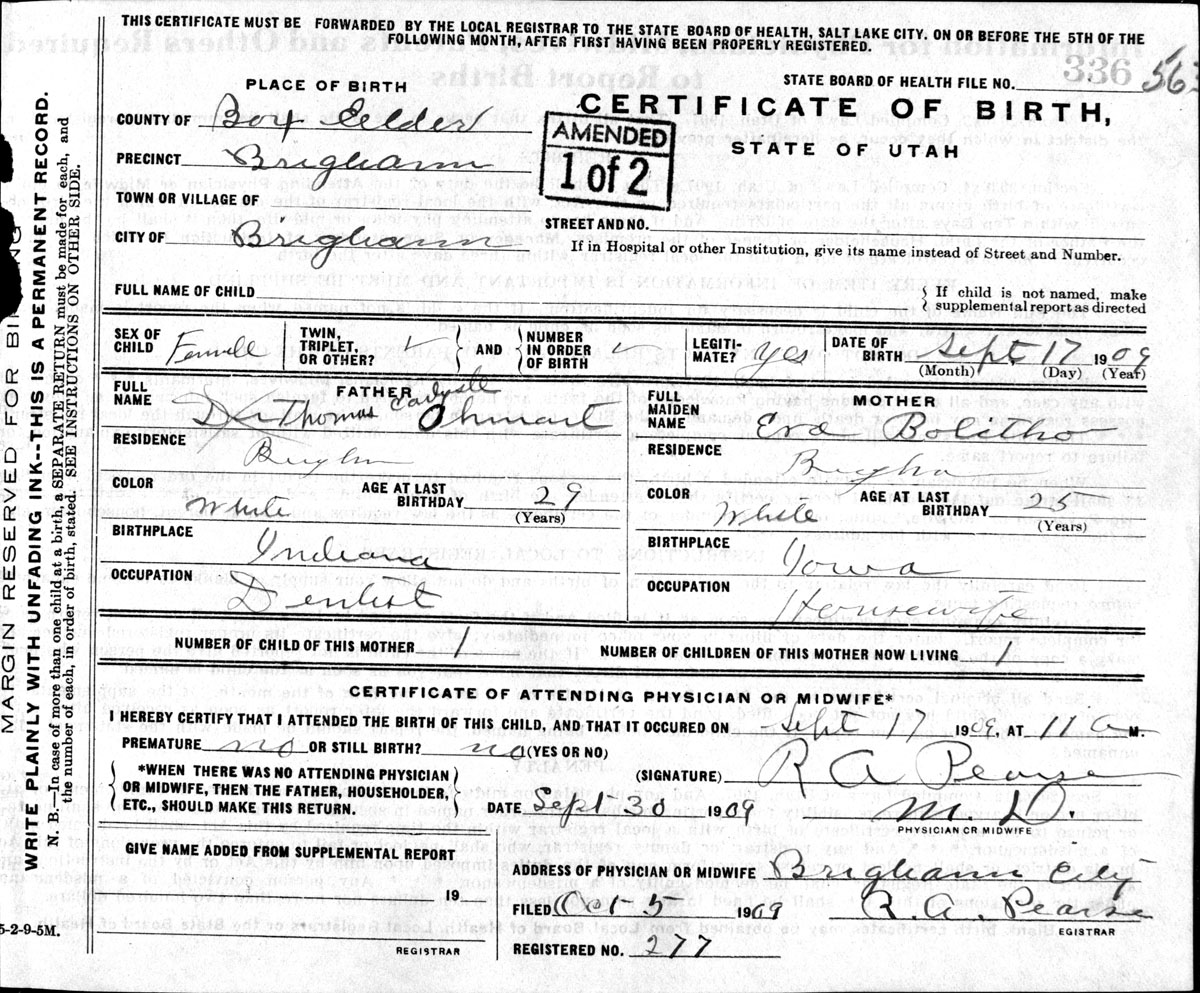 THIS CERTIFICATE MUST BE FORWARDED BY THE LOCAL REGISTRAR TO THE STATE BOARD OF HEALTH, SALT LAKE CITY, ON OR BEFORE THE 5TH OF THE
FOLLOWING MONTH, AFTER FIRST HAVING BEEN PROPERLY REGISTERED.
336
STATE BOARD OF HEALTH FILE NO. 563
PLACE OF BIRTH
CERTIFICATE OF BIRTH,
STATE OF UTAH
AMENDED
1 of 2
COUNTY OF Box Elder
PRECINCT Brigham
TOWN OR VILLAGE OF
STREET AND NO.
CITY OF Brigham
If in Hospital or other Institution, give its name instead of Street and Number.
FULL NAME OF CHILD
If child is not named, make
supplemental report as directed
SEX OF CHILD Female
TWIN, TRIPLET, OR OTHER?
AND
NUMBER IN ORDER OF BIRTH
LEGITI-MATE? Yes
DATE OF BIRTH Sept 17 1909
(Month) (Day) (Year)
FATHER
FULL NAME Dr Thomas Carlysle
RESIDENCE Brigham
COLOR White
AGE AT LAST BIRTHDAY 29
(Years)
BIRTHPLACE Indiana
OCCUPATION Dentist
MOTHER
FULL MAIDEN NAME Eva Bolitho
RESIDENCE Brigham
COLOR White
AGE AT LAST BIRTHDAY
(Years)
BIRTHPLACE Iowa
OCCUPATION Housewife
NUMBER OF CHILD OF THIS MOTHER 1
NUMBER OF CHILDREN OF THIS MOTHER NOW LIVING 1
CERTIFICATE OF ATTENDING PHYSICIAN OR MIDWIFE*
I HEREBY CERTIFY THAT I ATTENDED THE BIRTH OF THIS CHILD, AND THAT IT OCCURED ON Sept 17 1909, AT 11 a M.
PREMATURE no OR STILL BIRTH? no (YES OR NO)
*WHEN THERE WAS NO ATTENDING PHYSICIAN
OR MIDWIFE, THEN THE FATHER, HOUSEHOLDER,
ETC., SHOULD MAKE THIS RETURN.
(SIGNATURE) R A Pearse
M D.
PHYSICIAN OR MIDWIFE
DATE Sept 30 1909
GIVE NAME ADDED FROM SUPPLEMENTAL REPORT
19
REGISTRAR
ADDRESS OF PHYSICIAN OR MIDWIFE Brigham City
FILED Oct 5 1909 R. A. Pearse
EGISTRAR
REGISTERED NO. 277
MARGIN RESERVED FOR BI
WRITE PLAINLY WITH UNFADING INK--THIS IS A PERMANENT RECORD.
N. B.—In case of more than one child at a birth, a SEPARATE RETURN must be made for each, and
the number of each, in order of birth, stated. SEE INSTRUCTIONS ON OTHER SIDE.
5-2-9-5M.